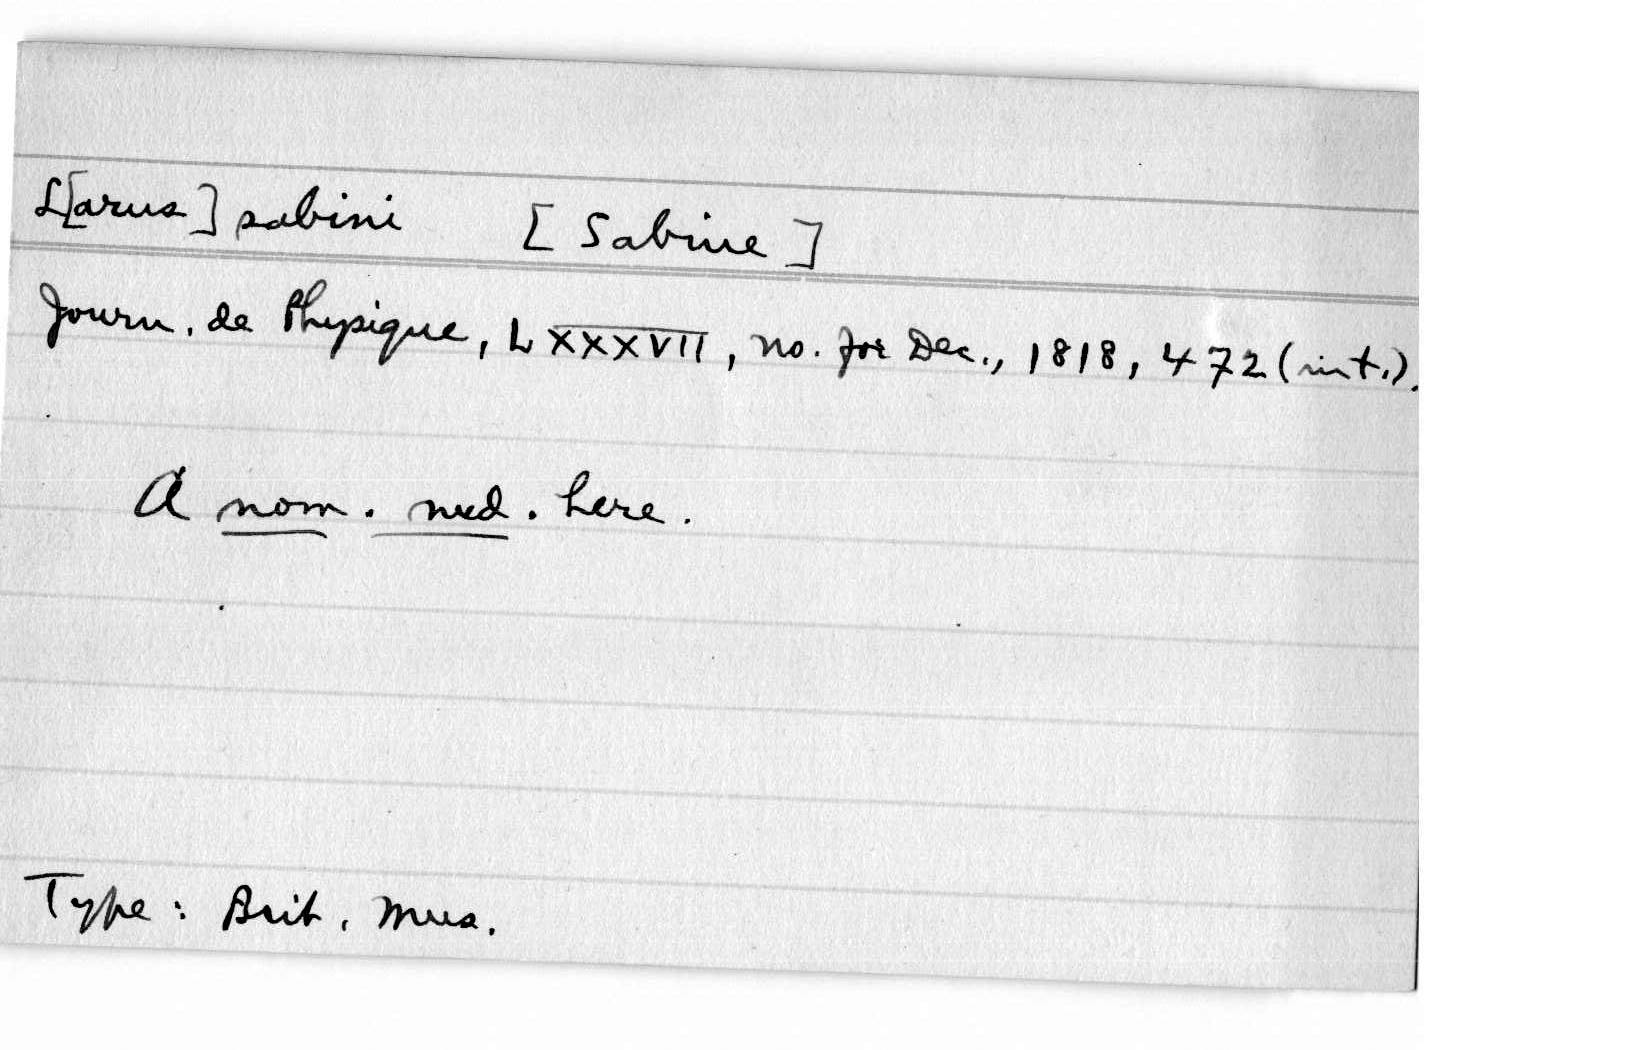 L[arus] sabini [Sabine]
Journ. de Physique, LXXXVII, no. for Dec., 1818, 472 (int.).
A nom. nud. here.
Type: Brit. Mus.